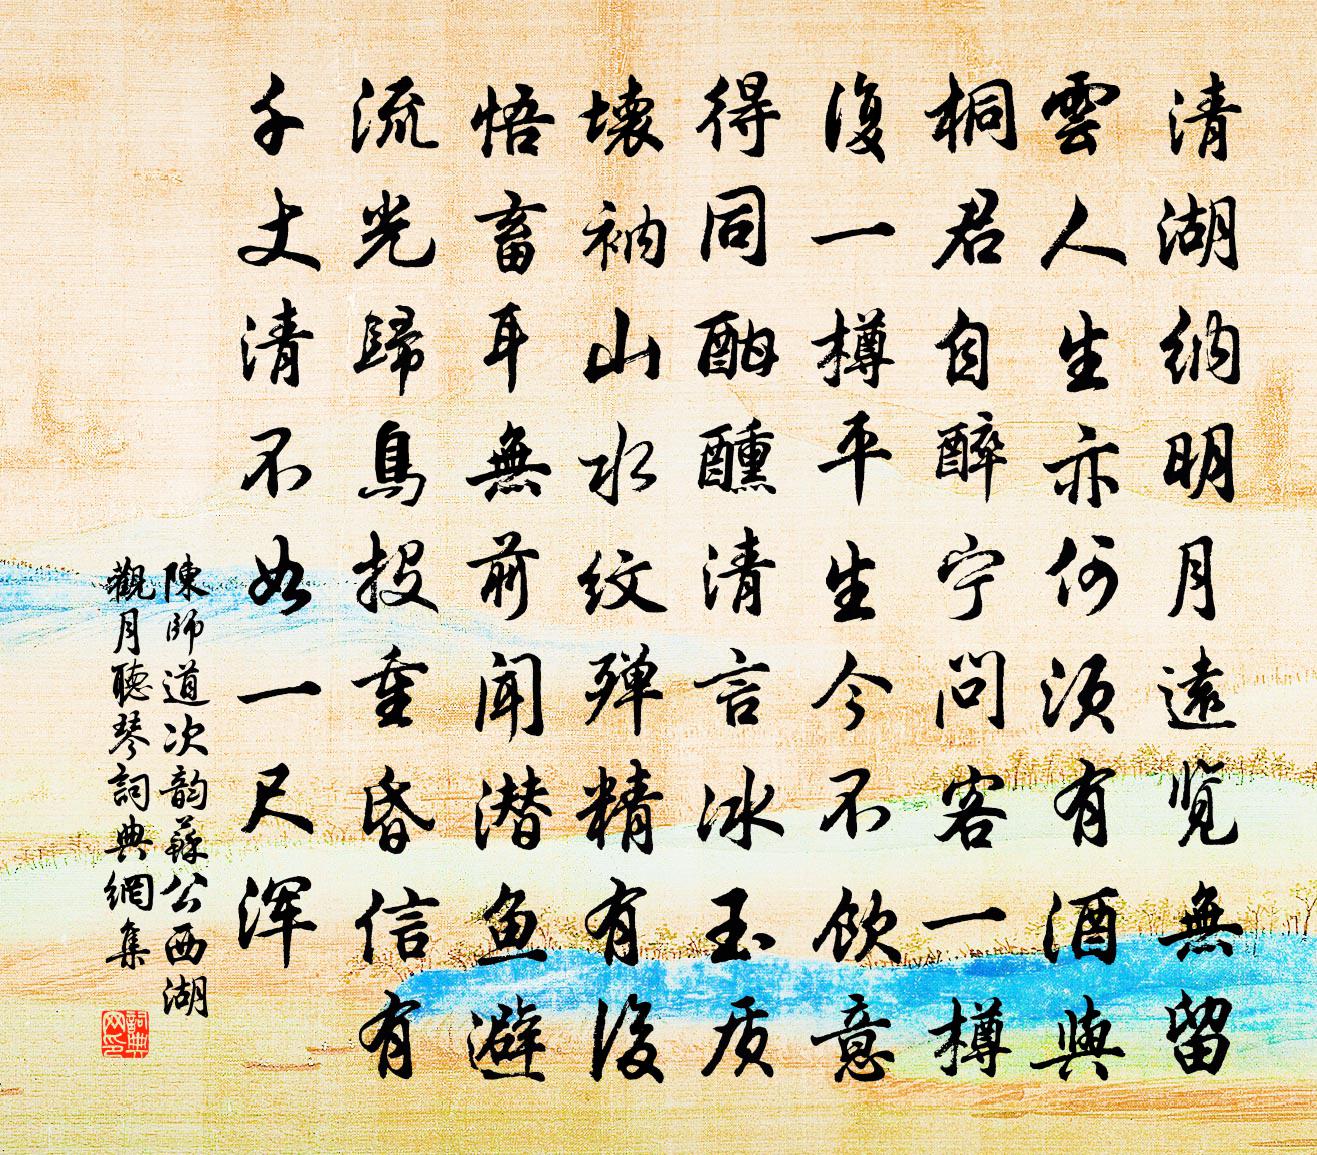 清湖納明月遠覧無留
雲人生亦何須有酒與
桐君自醉宁問客一樽
復一樽平生今不飲意
得同酣醺清言冰玉质
壊衲山水纹殫精有後
悟畜耳無前闻潜鱼避
流光歸鳥投重昏信有
千丈清不如一尺浑
陳師道次韵蘇公西湖
觀月聽琴詞典網集
詞典网印